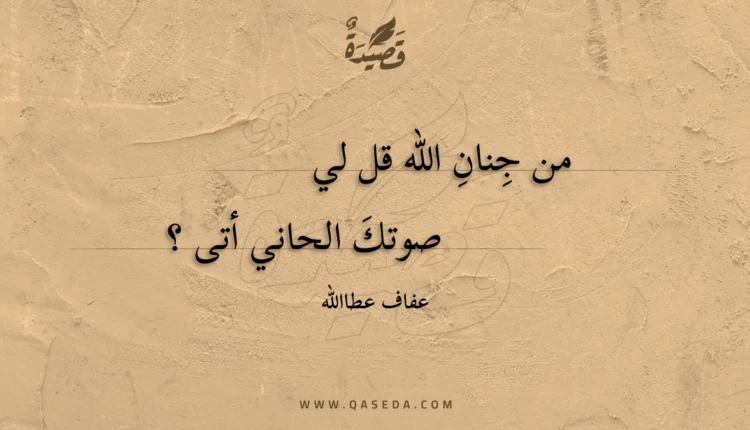 قَصِيدَةٌ
من جِنانِ الله قل لي
صوتكَ الحاني أتى ؟
عفاف عطاالله
WWW.QASEDA.COM